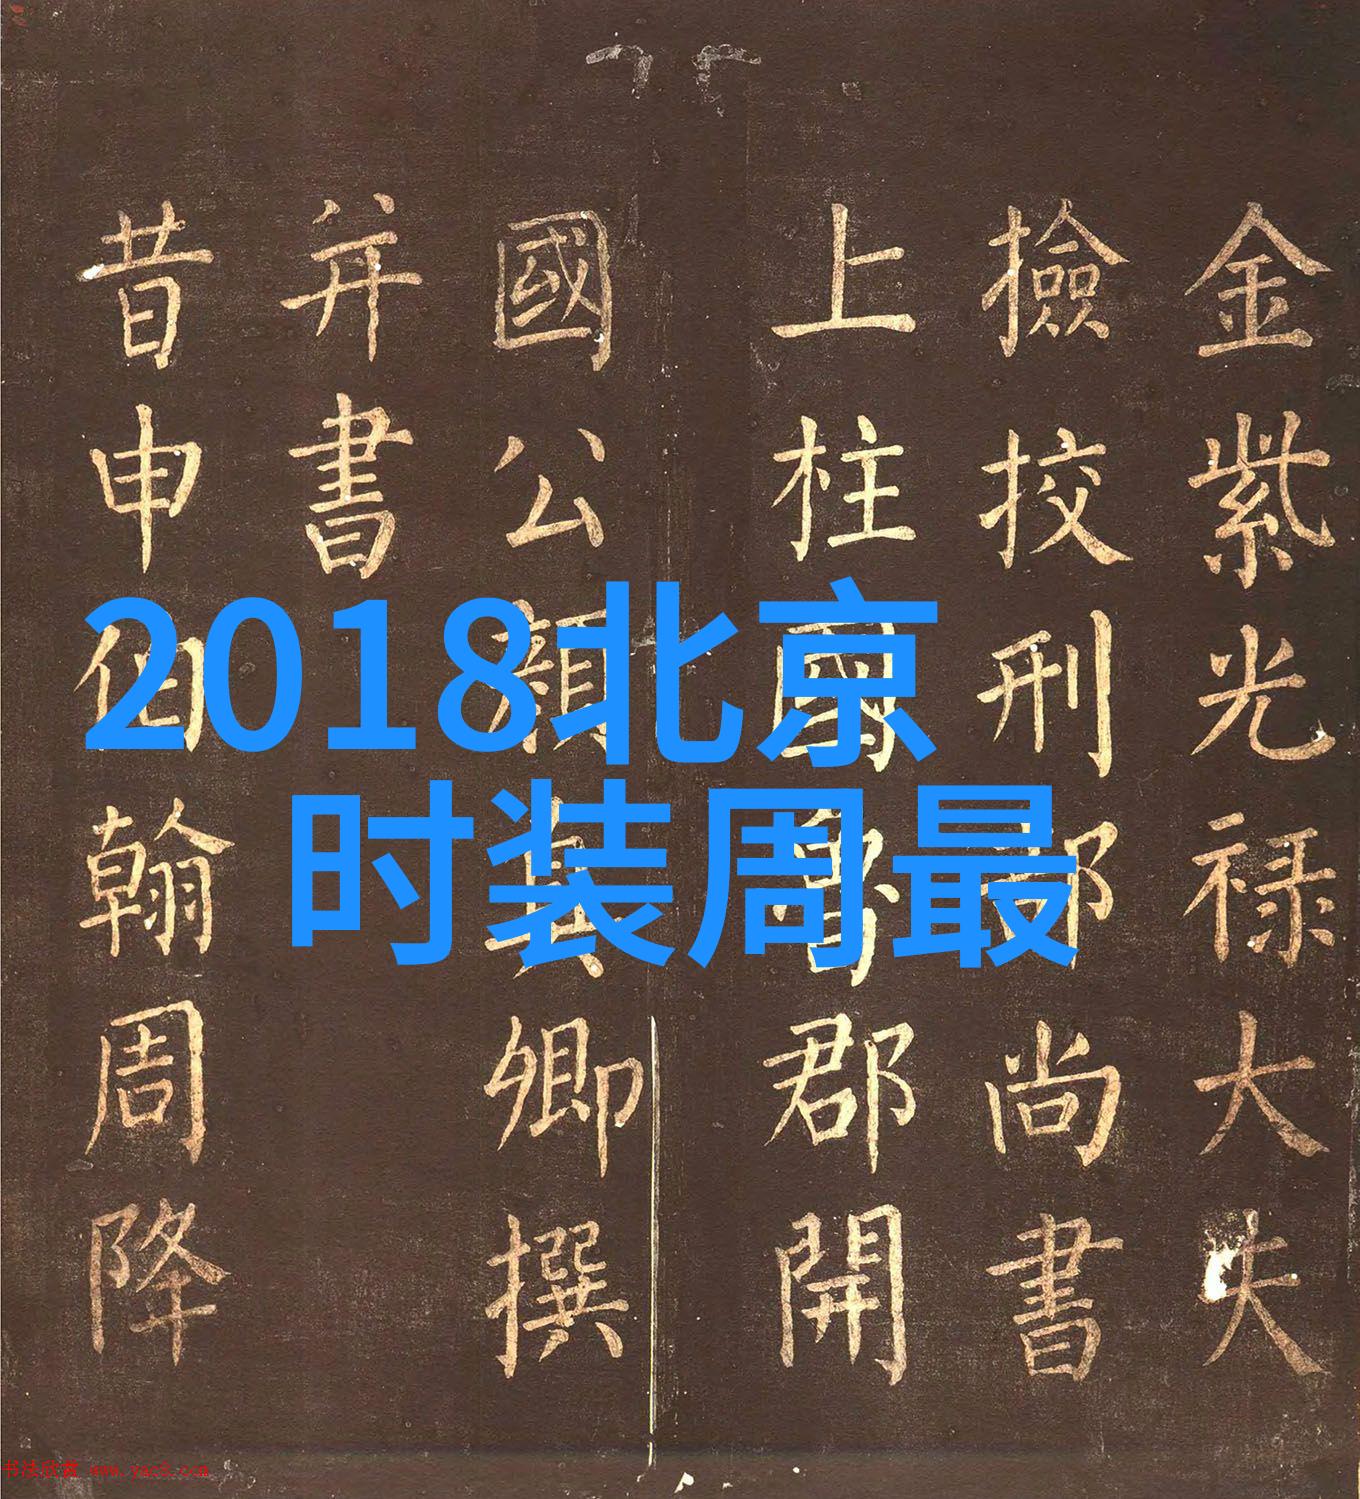 2018北京
时装周最
金紫光禄大夫
撿挍刑部尚書
上柱國魯郡開
國公顔真卿撰
并書
昔申伯翰周降
书法欣赏 www.yac8.com